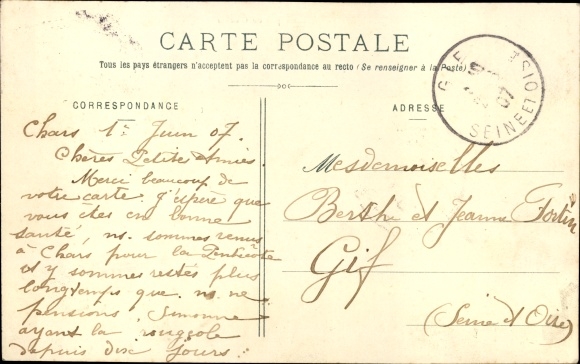 CARTE POSTALE
Tous les pays étrangers n'acceptent pas la correspondance au recto (Se renseigner à la Poste)
CORRESPONDANCE
ADRESSE
GIF
07
SEINE ET OISE
Chars 1er Juin 07.
Chères Petites Amies.
Merci beaucoup de
votre carte. J'espère que
vous êtes en bonne
santé, ns. sommes venus
à Chars pour la Pentecôte
et y sommes restés plus
longtemps que ns. ne
pensions, Simonne
ayant la rougeole
depuis dix jours.
Mesdemoiselles
Berthe et Jeanne Fortin
Gif
(Seine et Oise)